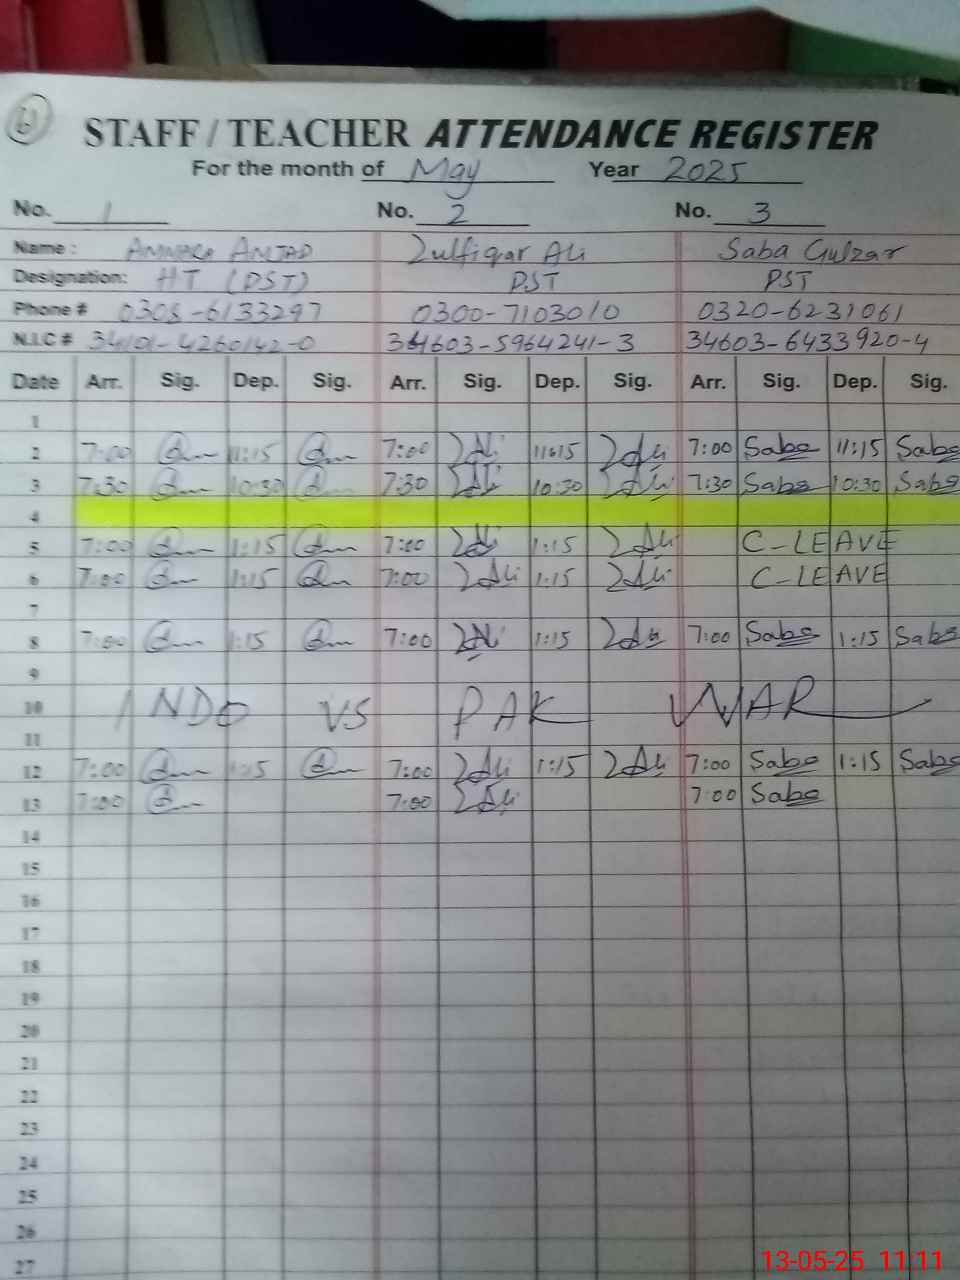 STAFF / TEACHER ATTENDANCE REGISTER
For the month of May Year 2025
No. 1 No. 2 No. 3
Name : AMJAD Zulfiqar Ali Saba Gulzar
Designation: HT (PST) PST PST
Phone # 0308-6133297 0300-7103010 0320-6231061
N.I.C # 34101-4260142-0 34603-5964241-3 34603-6433920-4
Date Arr. Sig. Dep. Sig. Arr. Sig. Dep. Sig. Arr. Sig. Dep. Sig.
1
2 7:00 11:15 7:00 ZAli 11:15 ZAli 7:00 Saba 11:15 Saba
3 7:30 10:30 7:30 ZAli 10:30 ZAli 7:30 Saba 10:30 Saba
4
5 7:00 1:15 7:00 ZAli 1:15 ZAli C-LEAVE
6 7:00 1:15 7:00 ZAli 1:15 ZAli C-LEAVE
7
8 7:00 1:15 7:00 ZAli 1:15 ZAli 7:00 Saba 1:15 Saba
9
10 INDO VS PAK WAR
11
12 7:00 1:15 7:00 ZAli 1:15 ZAli 7:00 Saba 1:15 Saba
13 7:00 7:00 ZAli 7:00 Saba
14
15
16
17
18
19
20
21
22
23
24
25
26
27
13-05-25 11:11